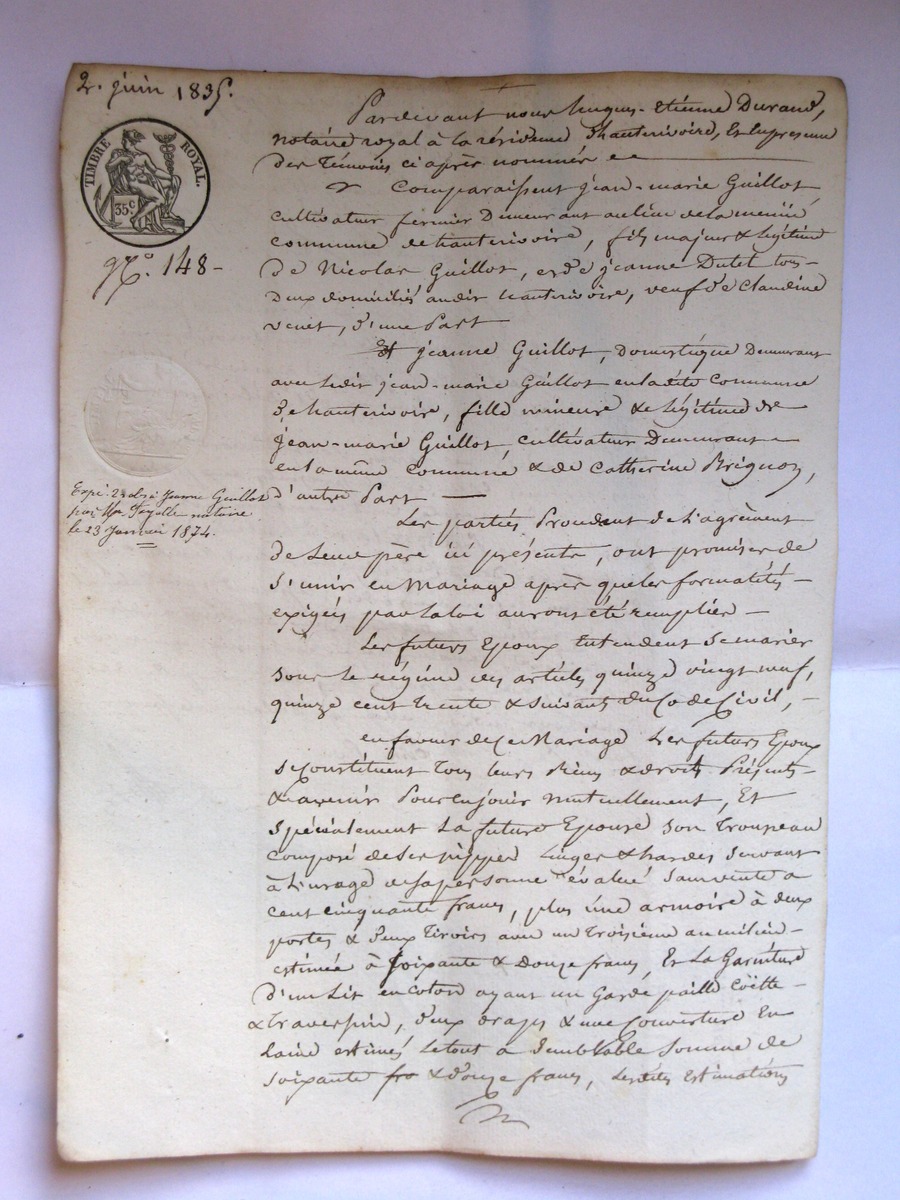 2. juin 1835.
TIMBRE ROYAL.
35c.
No. 148-
Expé. 2 rôles à Jeanne Guillot
par Me Fayolle notaire
le 23 Janvier 1874.
Pardevant nous hugues-étienne Durand,
notaire royal à la résidence d'hauterivoire, Et En présence
des Témoins ci après nommés
Comparaissent jean-marie Guillot,
cultivateur fermier Demeurant au lieu de
commune de hauterivoire, fils majeur & légitime
de Nicolas Guillot, et de jeanne Dutel tous
deux domiciliés audit hauterivoire, veuf de Claudine
venet, d'une Part
Et jeanne Guillot, Domestique Demeurant
avec ledit jean-marie Guillot en ladite commune
de hauterivoire, fille mineure & légitime de
jean-marie Guillot, cultivateur Demeurant
en la même commune & de Catherine Brignon,
d'autre Part
Les parties Procédant de l'agrément
de Leur père ici présents, ont promis de
s'unir en Mariage après que les formalités
exigées par la loi auront été remplies -
Les futurs Epoux Entendent se marier
sous le régime des articles quinze vingt neuf,
quinze cent trente & suivants du Code Civil, -
en faveur de ce Mariage Les futurs Epoux
se constituent tous leurs Biens & droits Présents
& avenir Pour en jouir mutuellement, Et
spécialement La future Epouse son Trousseau
composé de ses nippes Linges & hardes servant
à l'usage de sa personne évalué sans vente a
cent cinquante francs, plus une armoire à deux
portes & deux Tiroirs avec un Troisième au milieu
estimée à soixante & douze francs, Et La Garniture
d'un Lit en coton ayant un Garde paille Coëtte
& traversin, deux draps & une Couverture En
Laine estimés le tout a semblable somme de
soixante fra & douze francs, lesdites Estimations